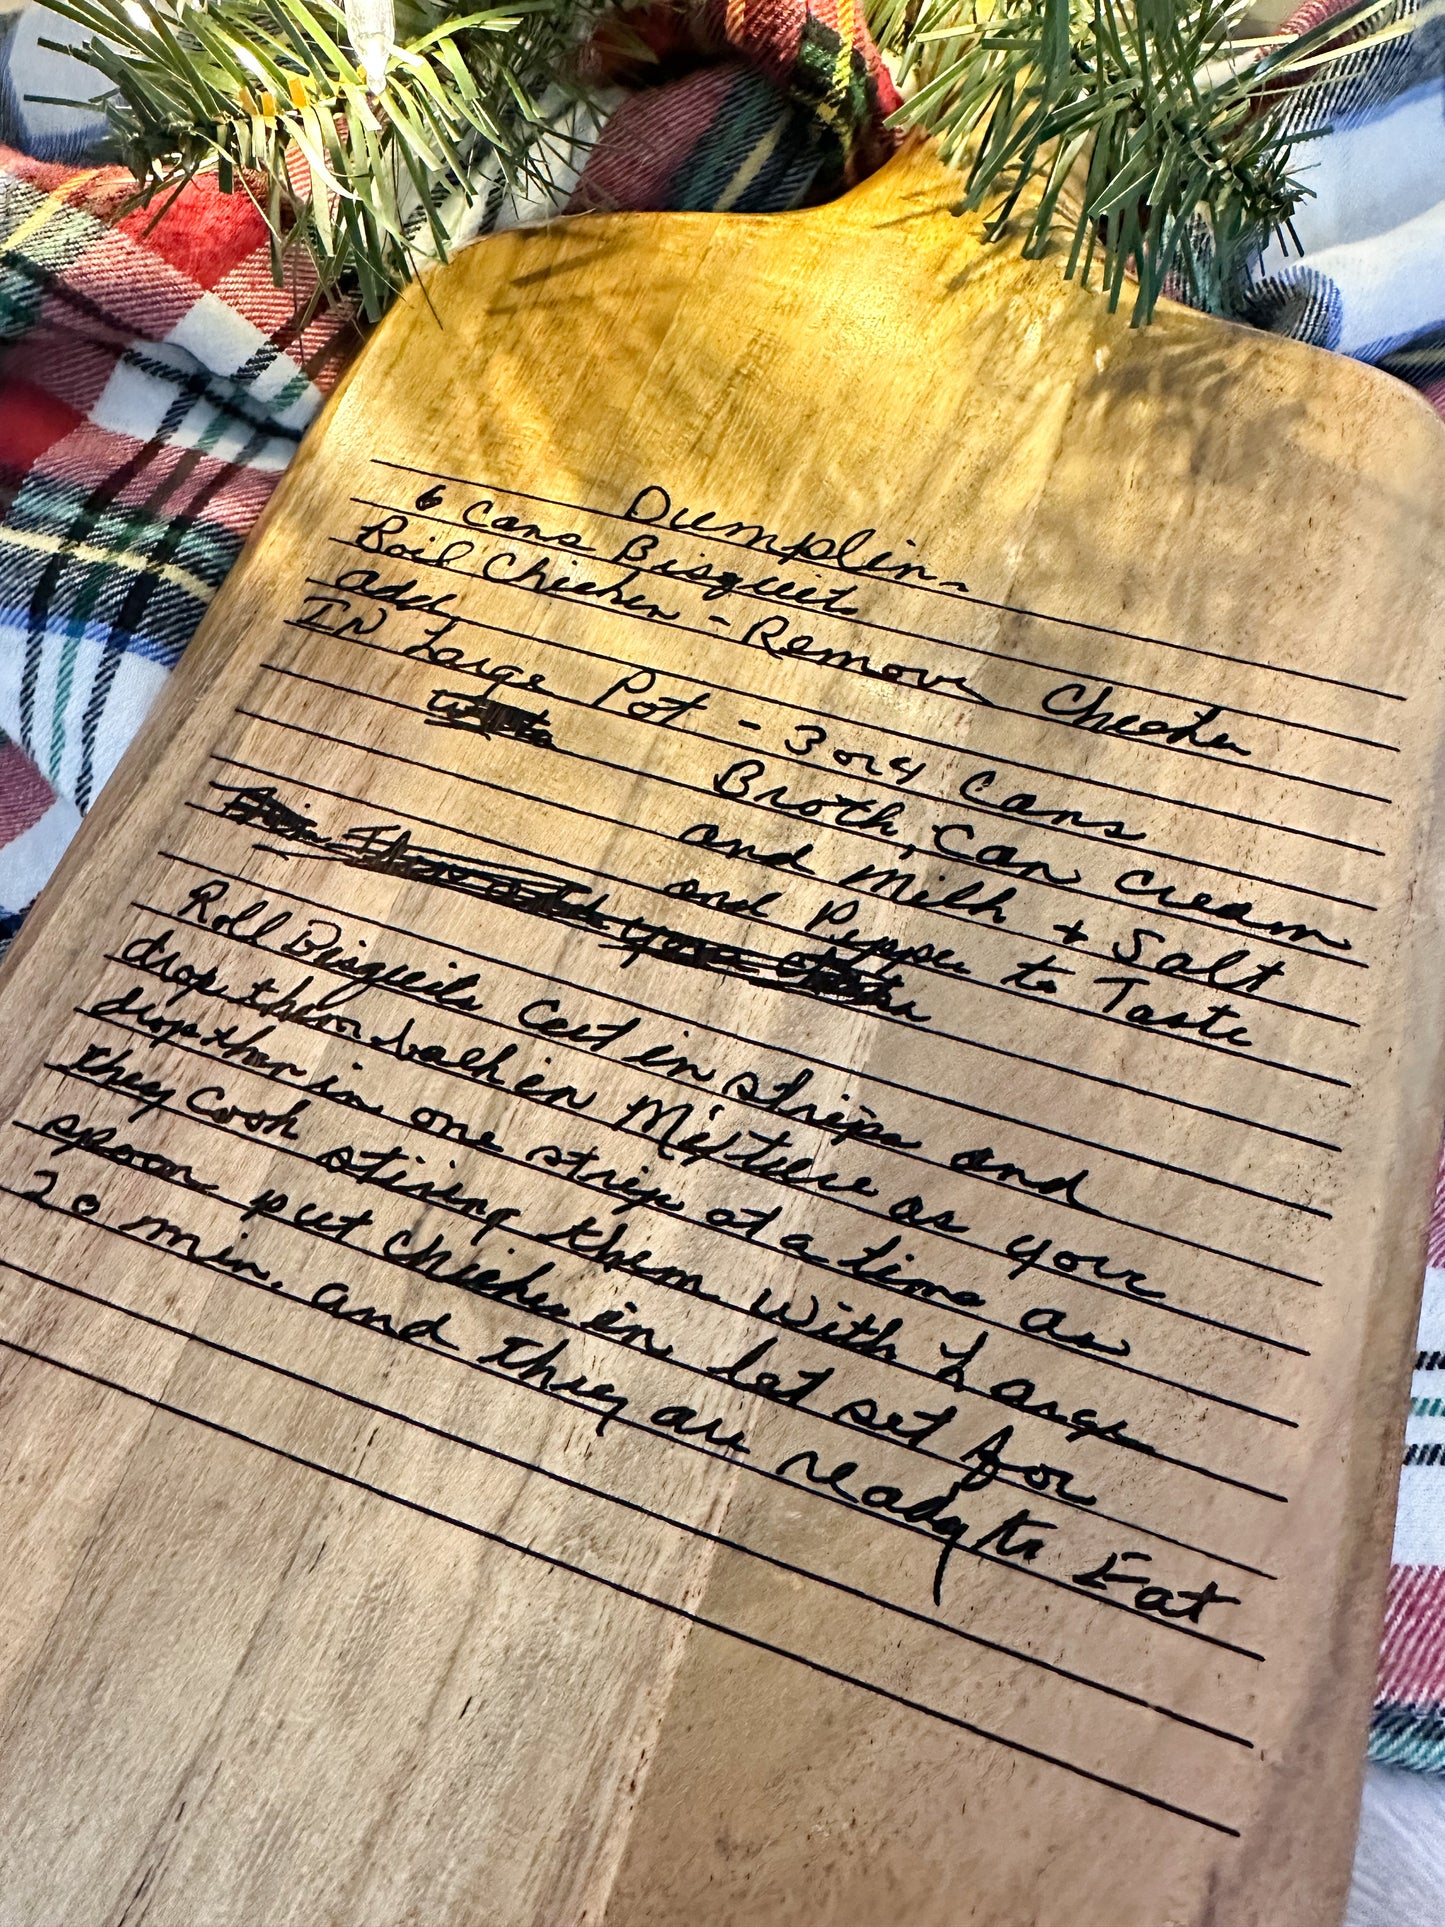 Dumplins
6 Cans Bisqueits
Boil Chicken - Remove Chicken
add
IN Large Pot - 3 or 4 Cans
Broth, Can Cream
and Milk + Salt
and Pepper to Taste
Roll Bisqueits Cut in strips and
drop them back in Mixture as you
drop them in one strip at a time as
they Cook stiring them with Large
spoon put chicken in let set for
20 min. and they are ready to Eat